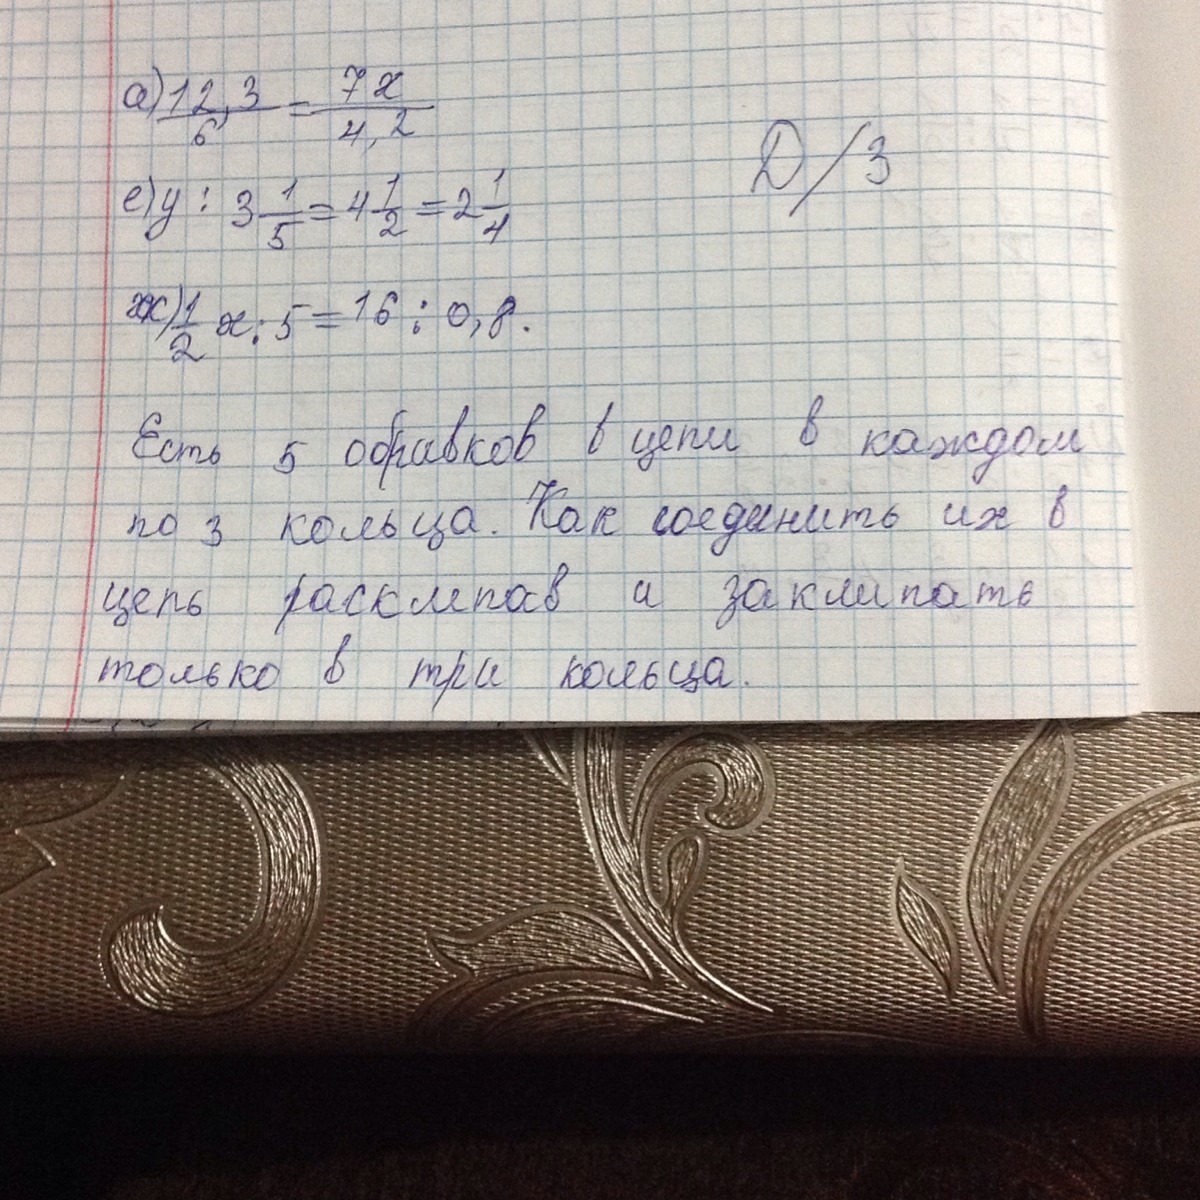 а) 12,3/6 = 7x/4,2
Д/З
е) y : 3 1/5 = 4 1/2 = 2 1/4
ж) 1/2 x : 5 = 16 : 0,8.
Есть 5 обрывков в цепи в каждом
по 3 кольца. Как соединить их в
цепь расклепав и заклепать
только в три кольца.